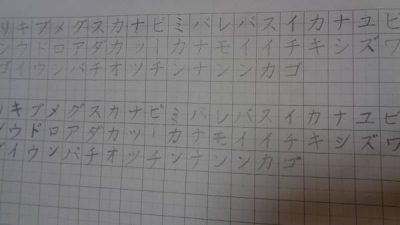 リキブメグスカナビミバレバスイカナユビ
ンウドロアダカッーカナモイイチキシズワ
ゴイウンバチオッチンナンンカゴ
リキブメグスカナビミバレバスイカナユビ
ンウドロアダカッーカナモイイチキシズワ
ゴイウンバチオッチンナンンカゴ